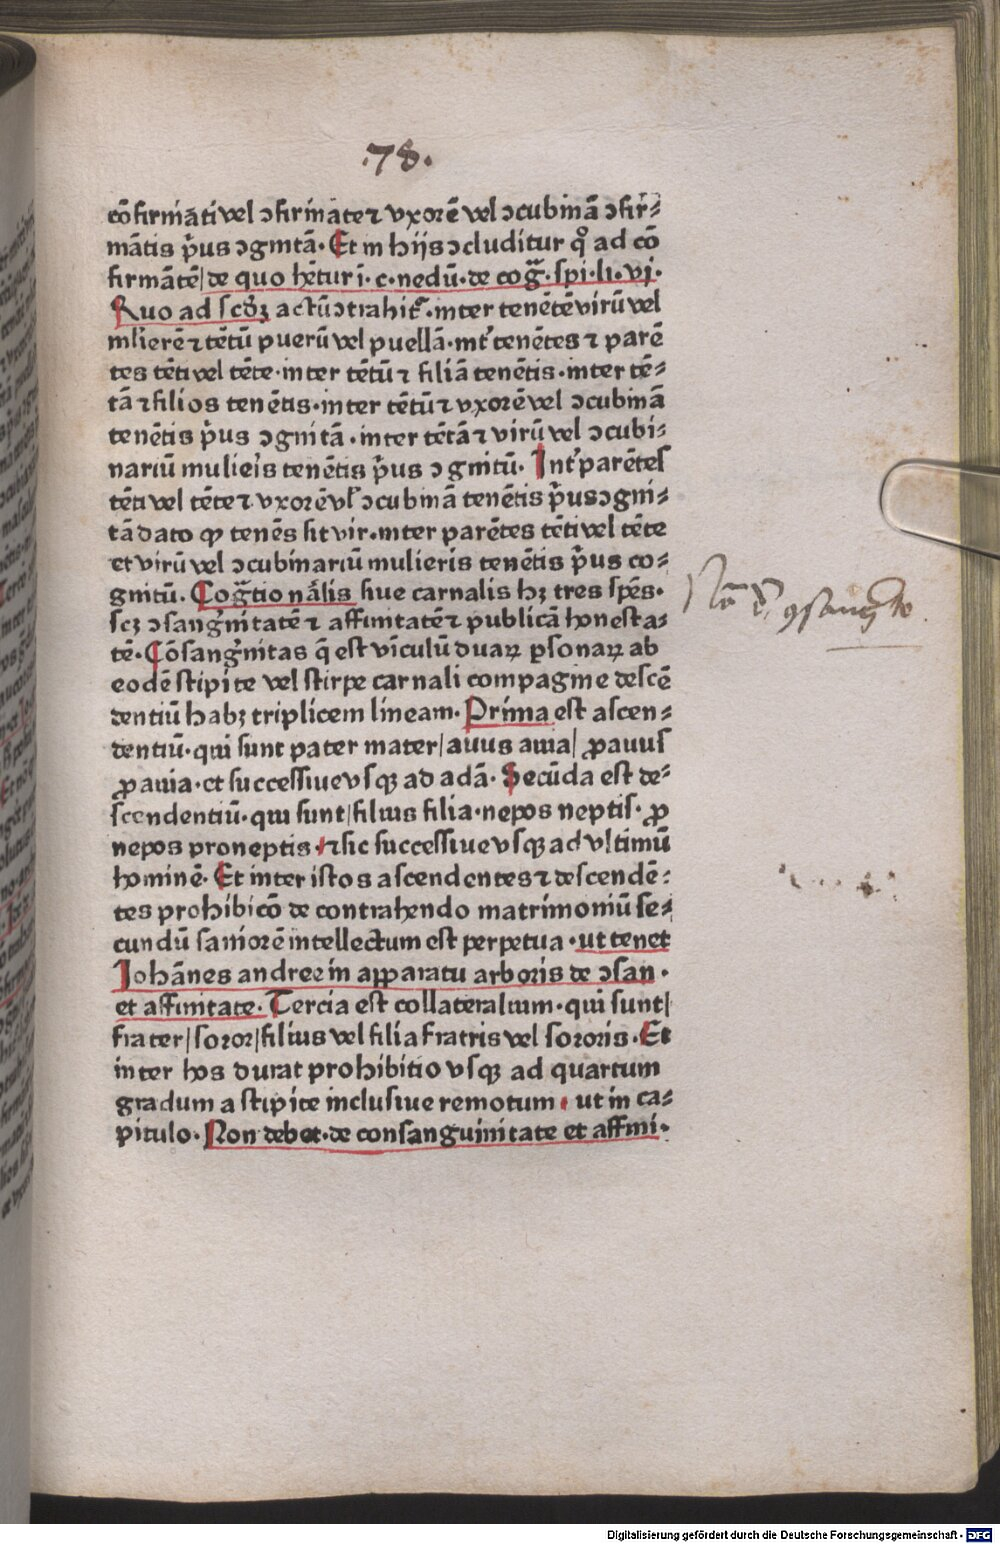 .78.
cōfirmāti vel ɔfirmāte ⁊ vxorē vel ɔcubinā ɔfir⸗
mātis p̄us ɔgnitā. Et in hijs ɔcluditur qͦ ad cō
firmātē/de quo hētur i. c. nedū. de cog̃. spi. li. vj.
Quo ad scd̓ꝫ actū ɔtrahit᷑. inter tenētē virū vel
mlierē ⁊ tētū puerū vel puellā. int᷑ tenētes ⁊ parē
tes tēti vel tēte. inter tētū ⁊ filiā tenētis. inter tē⸗
tā ⁊ filios tenētis. inter tētū ⁊ vxorē vel ɔcubinā
tenētis p̄us ɔgnitā. inter tētā ⁊ virū vel ɔcubi⸗
nariū mulieris tenētis p̄us ɔgnitū. Int᷑ parētes
tēti vel tēte ⁊ vxorē vl᷑ ɔcubinā tenētis p̄us ɔgni⸗
tā dato ꝙ tenēs sit vir. inter parētes tēti vel tēte
et virū vel ɔcubinariū mulieris tenētis p̄us co⸗
gnitū. Cog̃tio nālis siue carnalis hꝫ tres spēs.
scꝫ ɔsang̓nitatē ⁊ affinitatē ⁊ publicā honesta⸗
tē. Cōsang̓nitas q̄ est vīculū duaꝝ ꝑsonaꝝ ab
eodē stipite vel stirpe carnali compagine descē
dentiū habꝫ triplicem lineam. Prima est ascen⸗
dentiū. qui sunt pater mater/auus auia/ ꝓauus
ꝓauia. et successiue vsqꝫ ad adā. Secūda est de⸗
scendentiū. qui sunt/filius filia. nepos neptis. ꝓ
nepos proneptis. ⁊ sic successiue vsqꝫ ad vltimū
hominē. Et inter istos ascendentes ⁊ descendē⸗
tes prohibicō de contrahendo matrimoniū se⸗
cundū saniorē intellectum est perpetua. ut tenet
Iohānes andree in apparatu arboris de ɔsan.
et affinitate. Tercia est collateralium. qui sunt/
frater/soror/filius vel filia fratris vel sororis. Et
inter hos durat prohibitio vsqꝫ ad quartum
gradum a stipite inclusiue remotum. ut in ca⸗
pitulo. Non debet. de consanguinitate et affini.
Digitalisierung gefördert durch die Deutsche Forschungsgemeinschaft - DFG